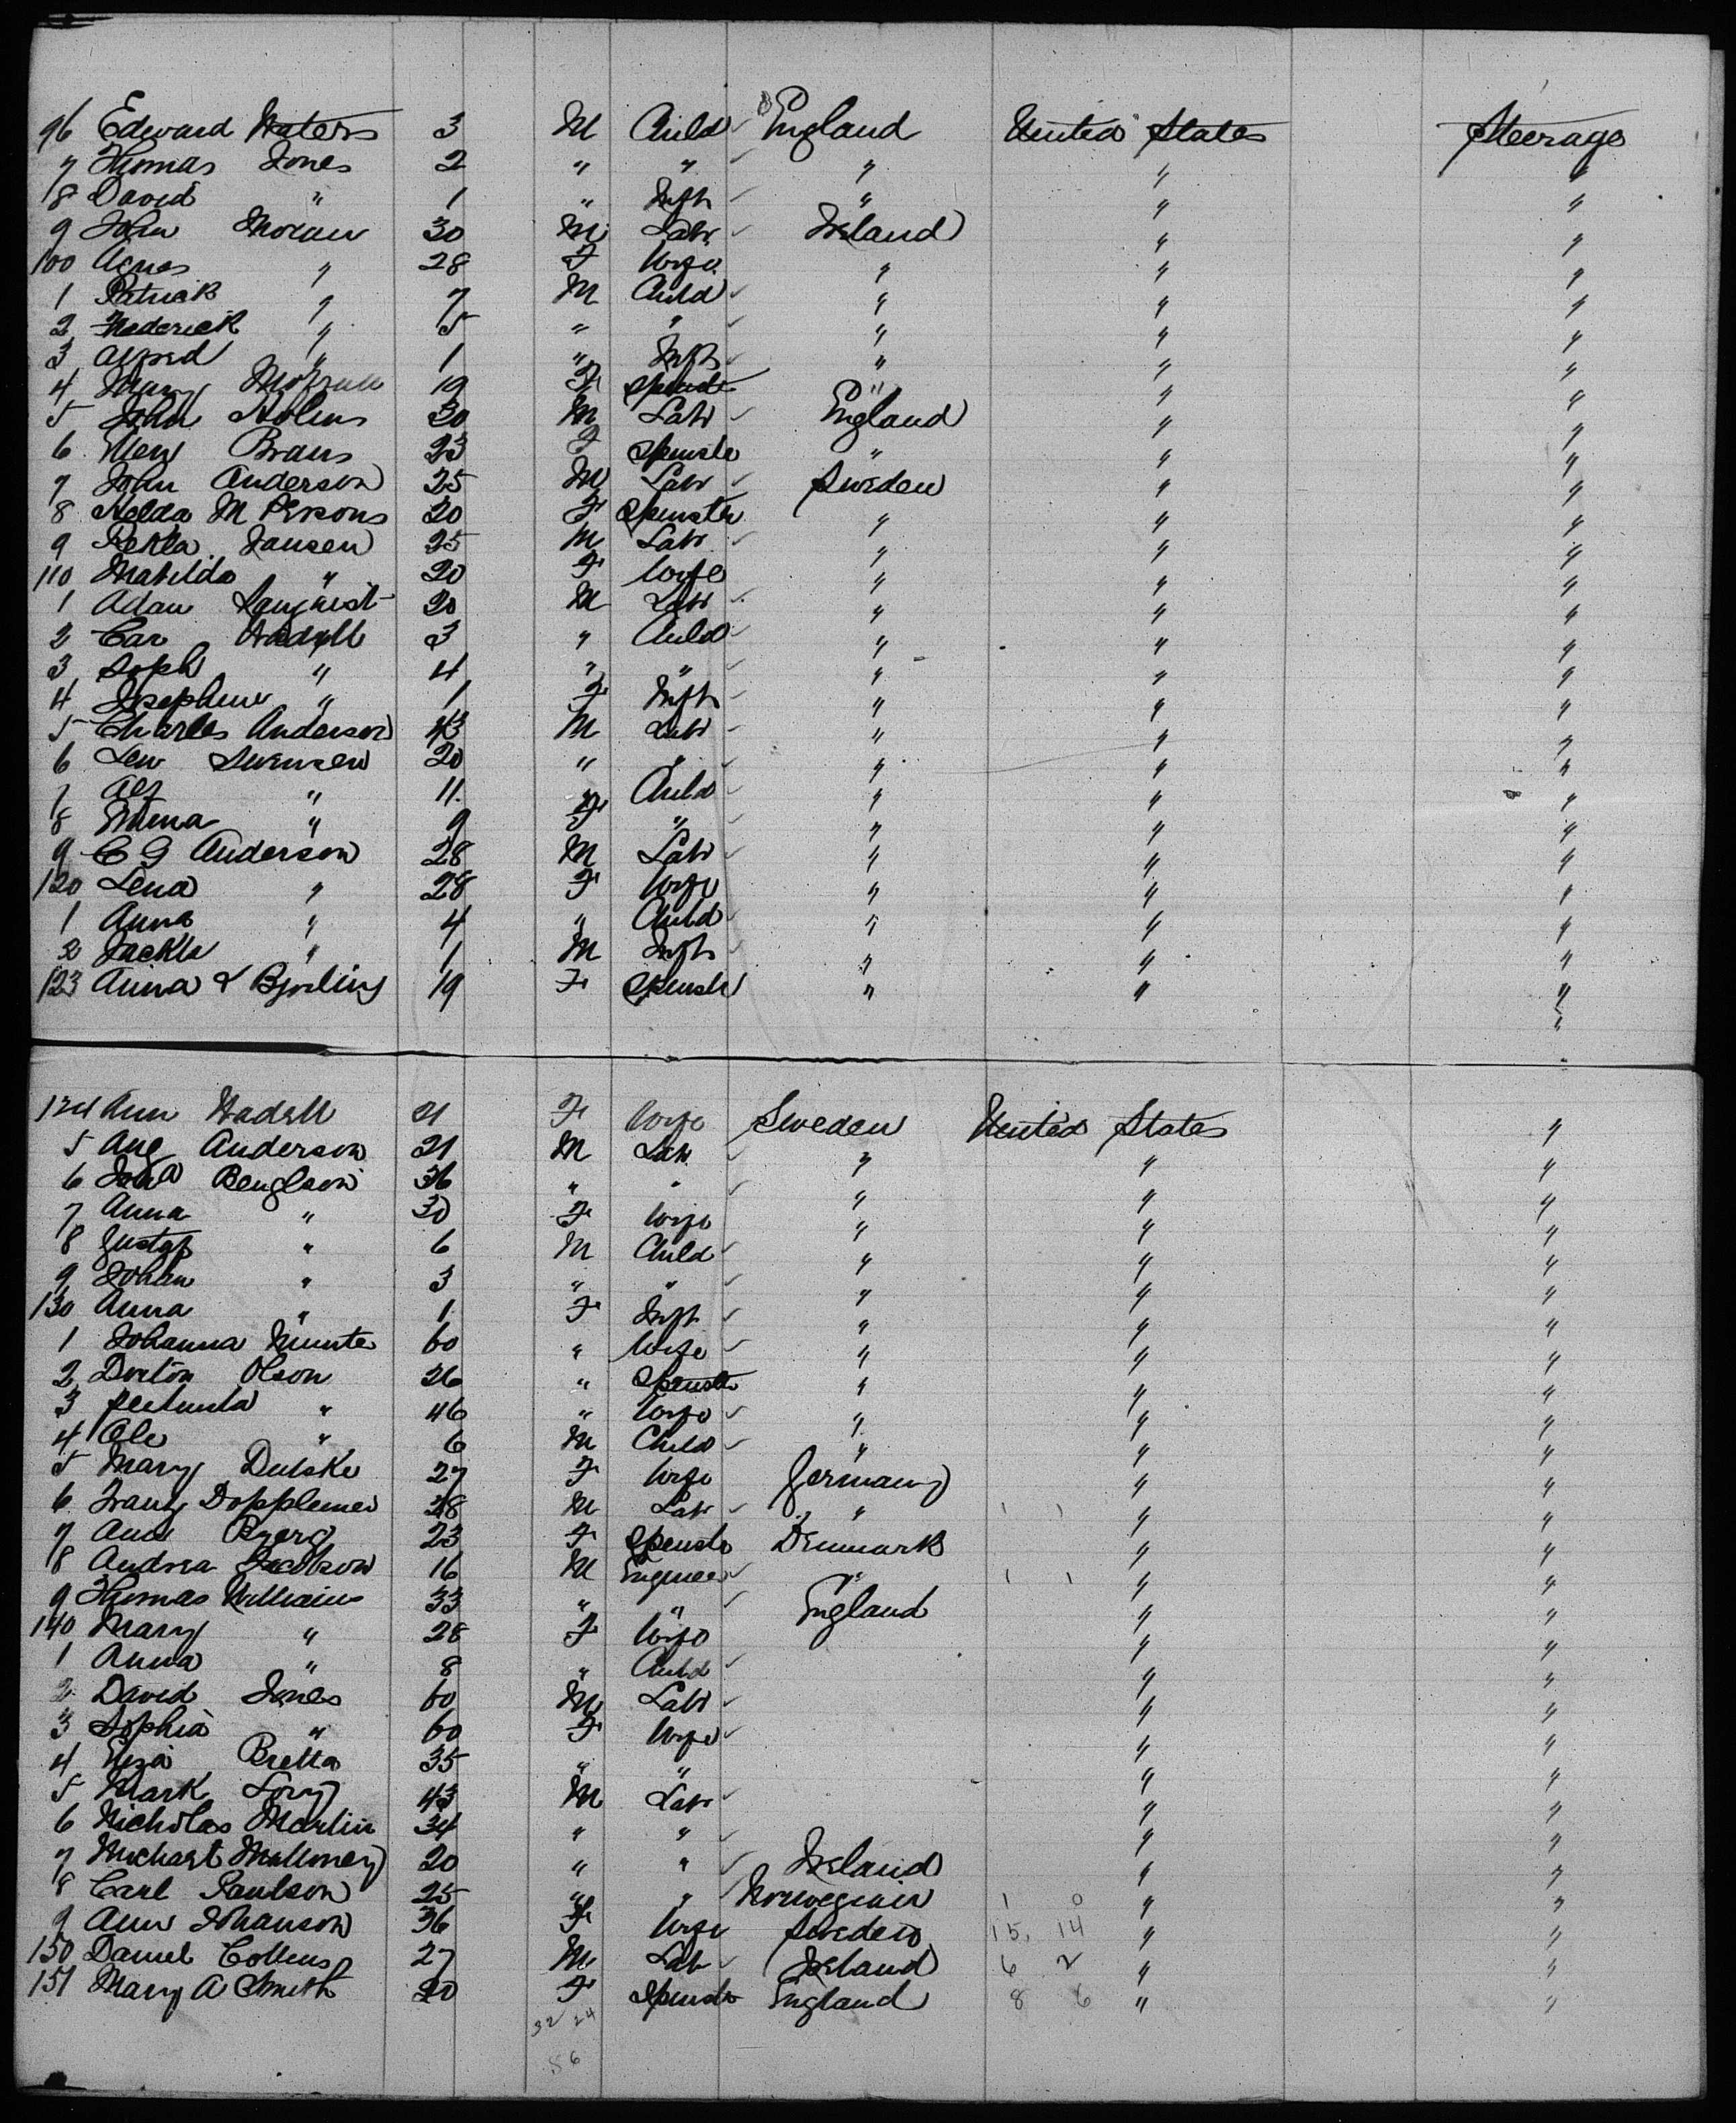 96 Edward Waters 3 M Child England United States Steerage
7 Thomas Jones 2 " " " " "
8 David " 1 " Inft " " "
9 John Moran 30 M Labr Ireland " "
100 Agnes " 28 F Wife " " "
1 Patrick " 7 M Child " " "
2 Frederick " 5 " " " " "
3 Alfred " 1 " Inft " " "
4 Mary 19 F Spinster " " "
5 John 30 M Labr England " "
6 23 F Spinster " " "
7 John Anderson 25 M Labr Sweden " "
8 Helda M Persons 20 F Spinster " " "
9 Jansen 25 M Labr " " "
110 Matilda " 20 F Wife " " "
1 Adam 20 M Labr " " "
2 Car Wadell 3 " Child " " "
3 Soph " 4 " " " " "
4 Josephine " 1 F Inft " " "
5 Charles Anderson 43 M Labr " " "
6 Len Swensen 20 " " " " "
7 Alf " 11 " Child " " "
8 Emma " 9 F " " " "
9 C G Anderson 28 M Labr " " "
120 Lena " 28 F Wife " " "
1 Anna " 4 " Child " " "
2 " 1 M Inft " " "
123 Anna L Bjorling 19 F Spinster " " "
"
124 Ann Wadell 21 F Wife Sweden United States "
5 Aug Anderson 21 M Labr " " "
6 Bengtson 36 " " " " "
7 Anna " 30 F Wife " " "
8 Gustaf " 6 M Child " " "
9 Johan " 3 " " " " "
130 Anna " 1 F Inft " " "
1 Johanna 60 " Wife " " "
2 Olson 26 " Spinster " " "
3 " 46 " Wife " " "
4 Ole " 6 M Child " " "
5 Mary Dulske 27 F Wife Germany " "
6 Franz 28 M Labr " " "
7 Ann 23 F Spinster Denmark " "
8 Andrea Jacobson 16 M Engineer " " "
9 Thomas Williams 33 " " England " "
140 Mary " 28 F Wife " "
1 Anna " 8 " Child " "
2 David Jones 60 M Labr " "
3 Sophia " 60 F Wife " "
4 Eliza Bretta 35 " " " "
5 Mark Lory 43 M Labr " "
6 Nicholas Martin 34 " " " "
7 Michael Mulloney 20 " " Ireland " "
8 Carl Paulson 25 " " Norwegian 1 0 " "
9 Ann Johanson 36 F Wife Sweden 15, 14 " "
150 Daniel Collens 27 M Labr Ireland 6 2 " "
151 Mary A Smith 20 F Spinster England 8 6 " "
32 24
56